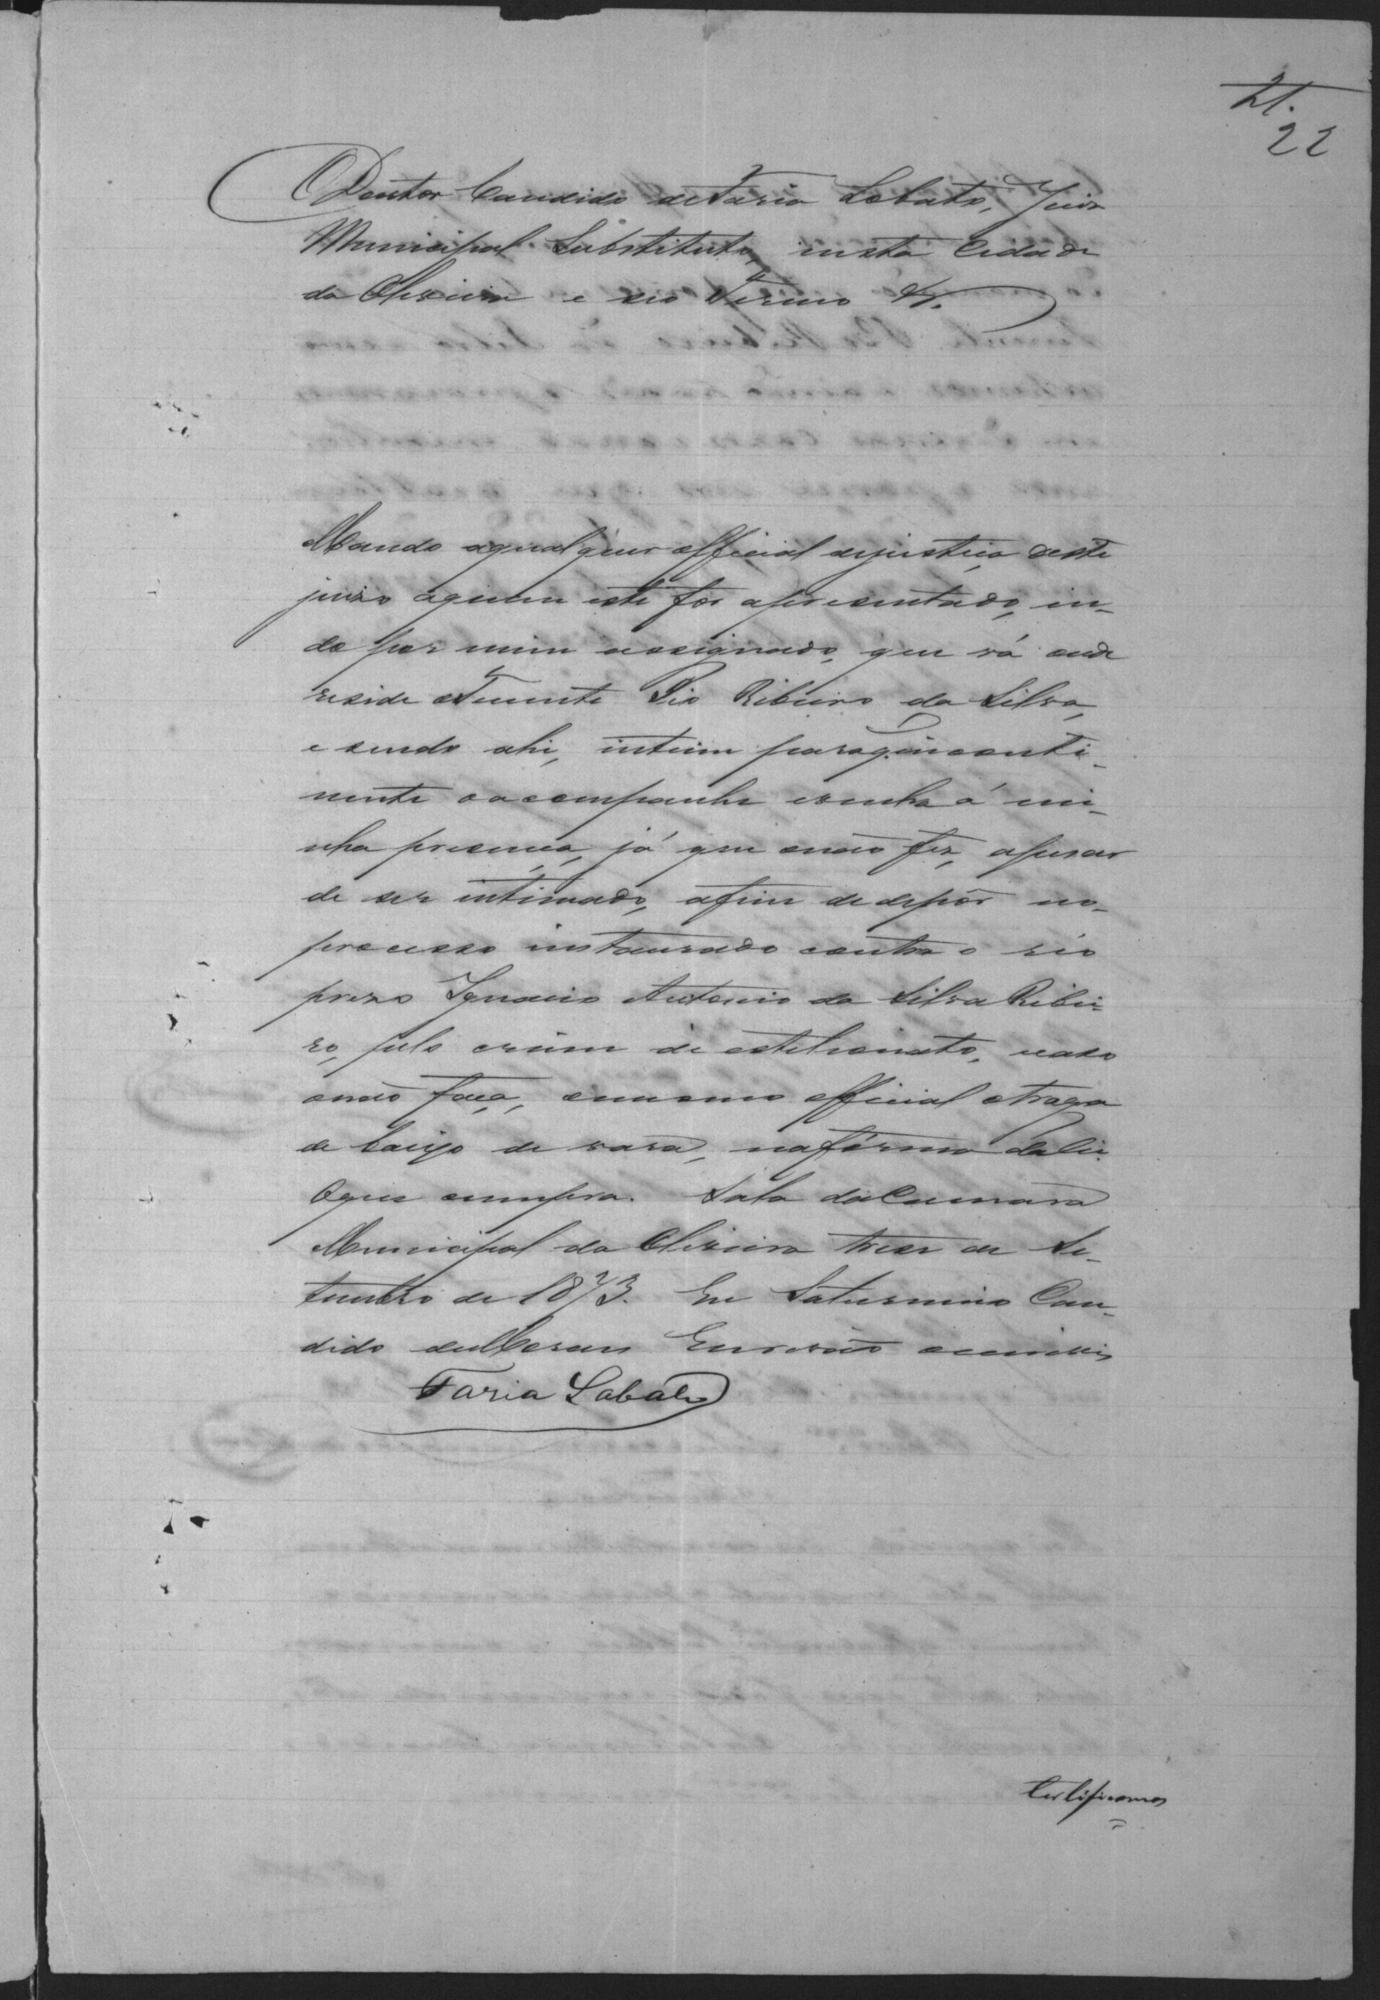 21.
22
O Doutor Candido de Faria Lobato, Juiz
Municipal Substituto, nesta Cidade
da Oliveira e seo Termo &.
Mando aqualquer official dejustiça deste
juizo áquem este fôr apresentado, in-
do por mim assignado, que vá onde
reside oTenente Pio Ribeiro da Silva,
e sendo ahi, intime paraq. inconti-
nente o acompanhe evenha á mi-
nha presença, já que onão fez, apesar
de ser intimado, afim dedepôr no
processo instaurado contra o réo
prezo Ignacio Antonio da Silva Ribei-
ro, pelo crime de estelionato, ecaso
onão faça, omesmo official otraga
de baixo de vara, nafórma daLei.
Oque cumpra. Sala daCamara
Municipal da Oliveira trez de Se-
tembro de 1873. Eu Saturnino Can-
dido Escrivão oescrevi
Faria Lobato
Certificamos